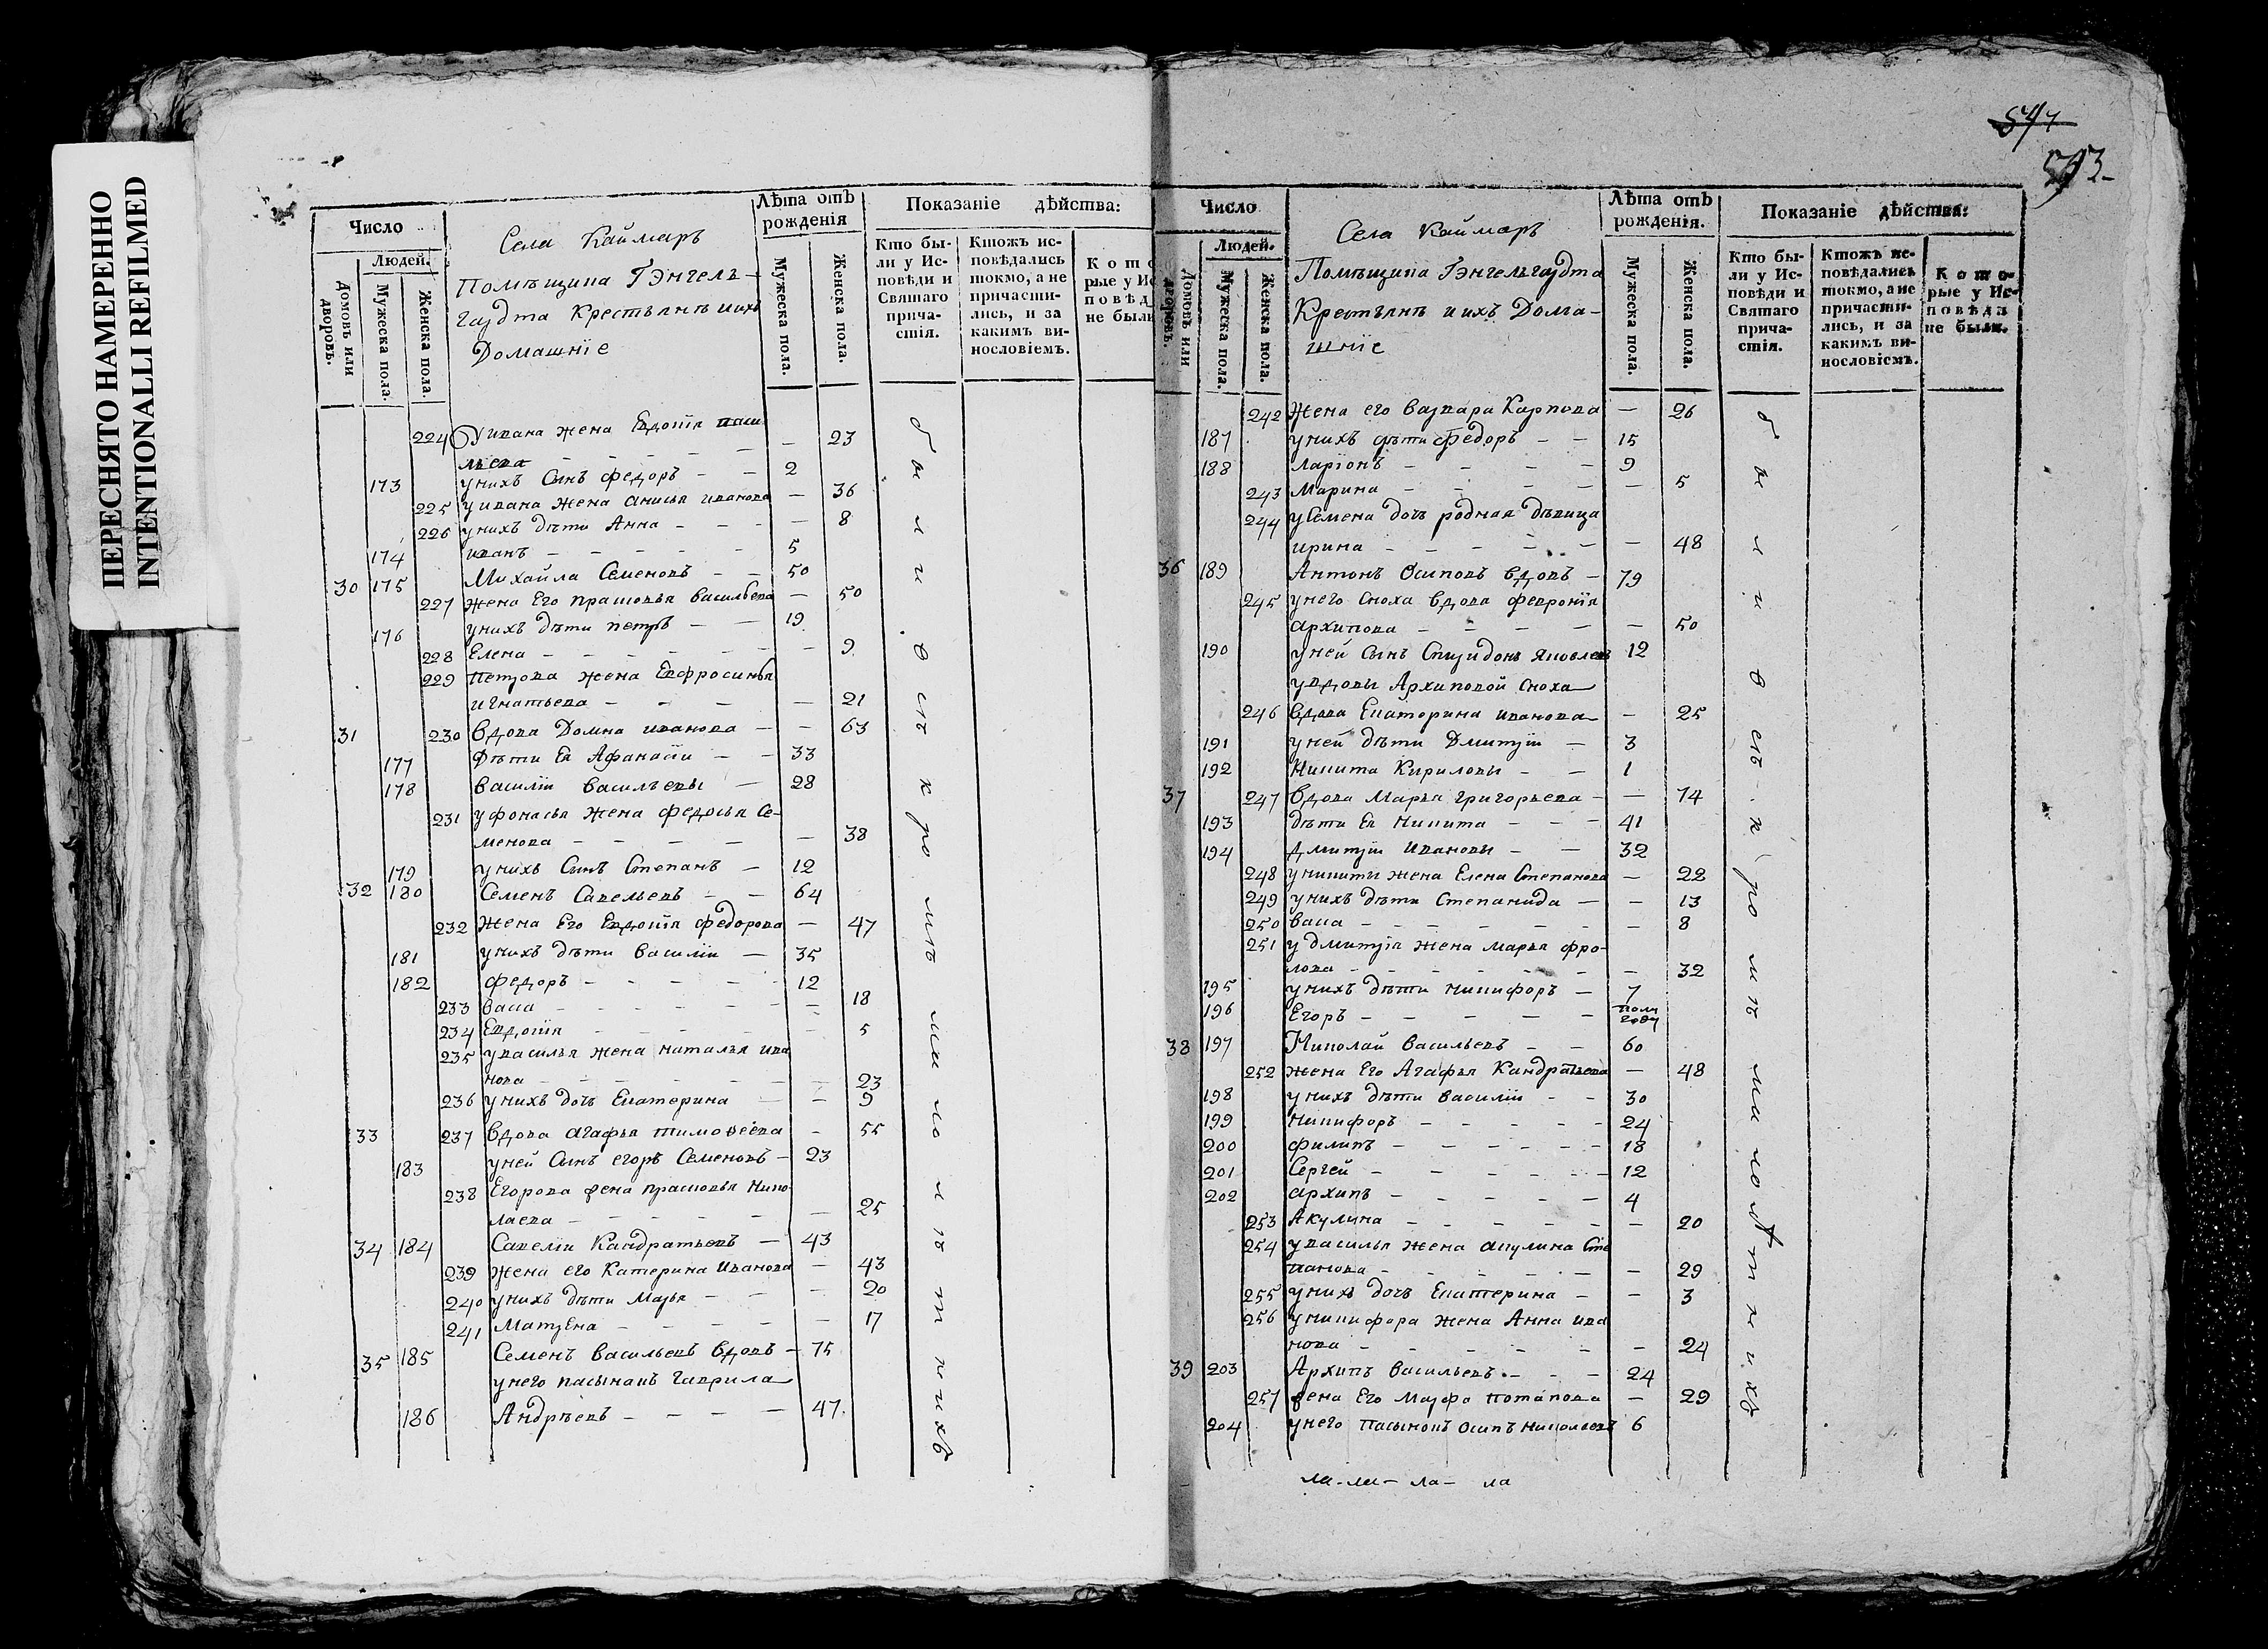 ПЕРЕСНЯТО НАМЕРЕННО
INTENTIONALLI REFILMED
Число
Людей.
Домовъ или дворовъ.
Мужеска пола.
Женска пола.
Села Каймаръ
Помѣщика Гэнгель-
гардта Крестьянъ и ихъ
Домашніе
Лѣта отъ рожденія
Мужеска пола.
Женска пола.
Показаніе дѣйства:
Кто бы-
ли у Ис-
повѣди и
Святаго
прича-
стія.
Ктожъ ис-
повѣдались
токмо, а не
причасти-
лись, и за
какимъ ви-
нословіемъ.
Кото
рые у Ис
повѣд
не были
224 Уивана жена Евдокія
— 23
173 унихъ Сынъ Федоръ — — 2
225 уивана жена Анисья иванова — 36
226 унихъ дѣти Анна — — — — 8
174 иванъ — — — — — 5
30 175 Михайла Семеновъ — — 50
227 жена Его прасковья васильева — 50
176 унихъ дѣти петръ — — 19
228 Елена — — — — — — 9
229 петрова жена Евфросинья
игнатьева — — — — 21
31 230 вдова Домна иванова — — 63
177 дѣти Ея Афанасіи — — 33
178 василіи васильевы — 28
231 уфонасья жена федосья Се-
менова — — — — — 38
179 унихъ Сынъ Степанъ — 12
32 180 Семенъ Савельевъ — — 64
232 жена Его Евдокія федорова — 47
181 унихъ дѣти василіи — 35
182 федоръ — — — — — 12
233 васа — — — — — — 18
234 Евдокія — — — — — 5
235 увасилья жена наталья ива
нова — — — — — — — 23
236 унихъ дочь Екатерина — — 9
33 237 вдова агафья тимоѳеева — 55
183 уней Сынъ егоръ Семеновъ — 23
238 Егорова жена прасковья Нико
лаева — — — — — — 25
34 184 Савелiи Кандратьевъ — 43
239 жена его Катерина Иванова — 43
240 унихъ дѣти Марья — — — 20
241 Матрена — — — — — 17
35 185 Семенъ васильевъ вдовъ — 75
унего пасынакъ гаврила
186 Андрѣевъ — — — — 47.
были всѣ кромѣ малолѣтнихъ
547
Число
Людей.
Домовъ или дворовъ.
Мужеска пола.
Женска пола.
Села Каймаръ
Помѣщика Гэнгельгардта
Крестьянъ и ихъ Дома-
шніе
Лѣта отъ рожденія.
Мужеска пола.
Женска пола.
Показаніе дѣйства:
Кто бы-
ли у Ис-
повѣди и
Святаго
прича-
стія.
Ктожъ ис-
повѣдались
токмо, а не
причасти-
лись, и за
какимъ ви-
нословіемъ.
Кото-
рые у Ис-
повѣди
не были.
242 Жена его варвара Карпова — 26
187 унихъ дѣти Федоръ — — 15
188 ларіонъ — — — — 9
243 марина — — — — — 5
244 уСемена дочь родная дѣвица
ирина — — — — — — 48
36 189 Антонъ Осиповъ вдовъ — 79
245 унего сноха вдова феврония
архипова — — — — — 50
190 уней Сынъ Спиридонъ Яковлевъ 12
увдовы Архиповой сноха
246 вдова Екатерина иванова — 25
191 уней дѣти Дмитріи — 3
192 Никита Кириловы — — 1
37 247 вдова Марья григорьева — — 74
193 дѣти Ея Никита — — — 41
194 дмитріи Ивановы — — 32
248 уникиты жена Елена Степанова — 22
249 унихъ дѣти Степанида — — 13
250 васа — — — — — — — 8
251 удмитрія жена марья фро-
лова — — — — — — — 32
195 унихъ дѣти никифоръ — 7
196 Егоръ — — — — — полу году
38 197 Николай васильевъ — — 60
252 жена Его Агафья Кандратьева — 48
198 унихъ дѣти василіи — — 30
199 никифоръ — — — — — 24
200 филипъ — — — — — — 18
201 Сергей — — — — — — 12
202 архипъ — — — — — 4
253 Акулина — — — — — — 20
254 увасилья жена акулина Сте
панова — — — — — — 29
255 унихъ дочь Екатерина — — 3
256 уникифора жена Анна ива
нова — — — — — — 24
39 203 Архипъ васильевъ — — — 24
257 жена Его Марфа потапова — 29
204 унего пасынокъ осипъ николаевъ 6
были всѣ кромѣ малолѣтнихъ
ла-ла- ла- ла